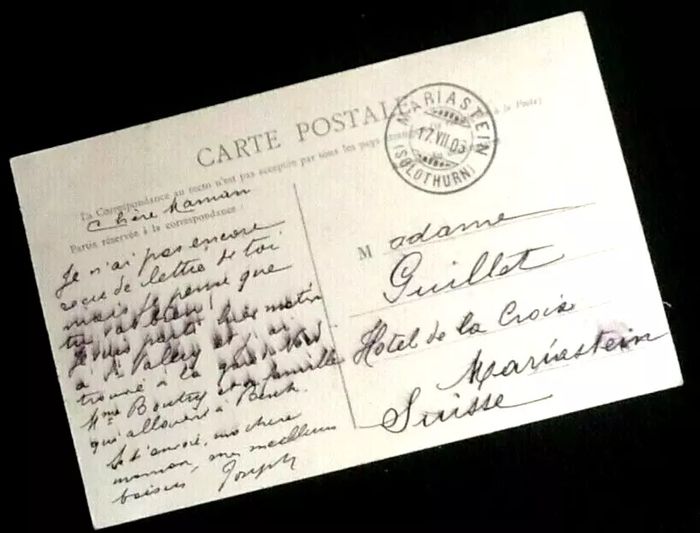 CARTE POSTALE
La Correspondance au recto n'est pas acceptée par tous les pays à la Poste)
Partie réservée à la correspondance
MARIASTEIN
17.VII.05
(SOLOTHURN)
Chère Maman
Je n'ai pas encore
reçu de lettre de toi
mais je pense que
tu vas bien!
Je suis parti hier matin
à St Valery et j'ai
trouvé à la gare du Nord
Mme Boutry et sa famille
qui allaient à Berck.
Je t'envoie, ma chère
maman, mes meilleurs
baisers Joseph
M adame
Guillet
Hôtel de la Croix
Mariastein
Suisse